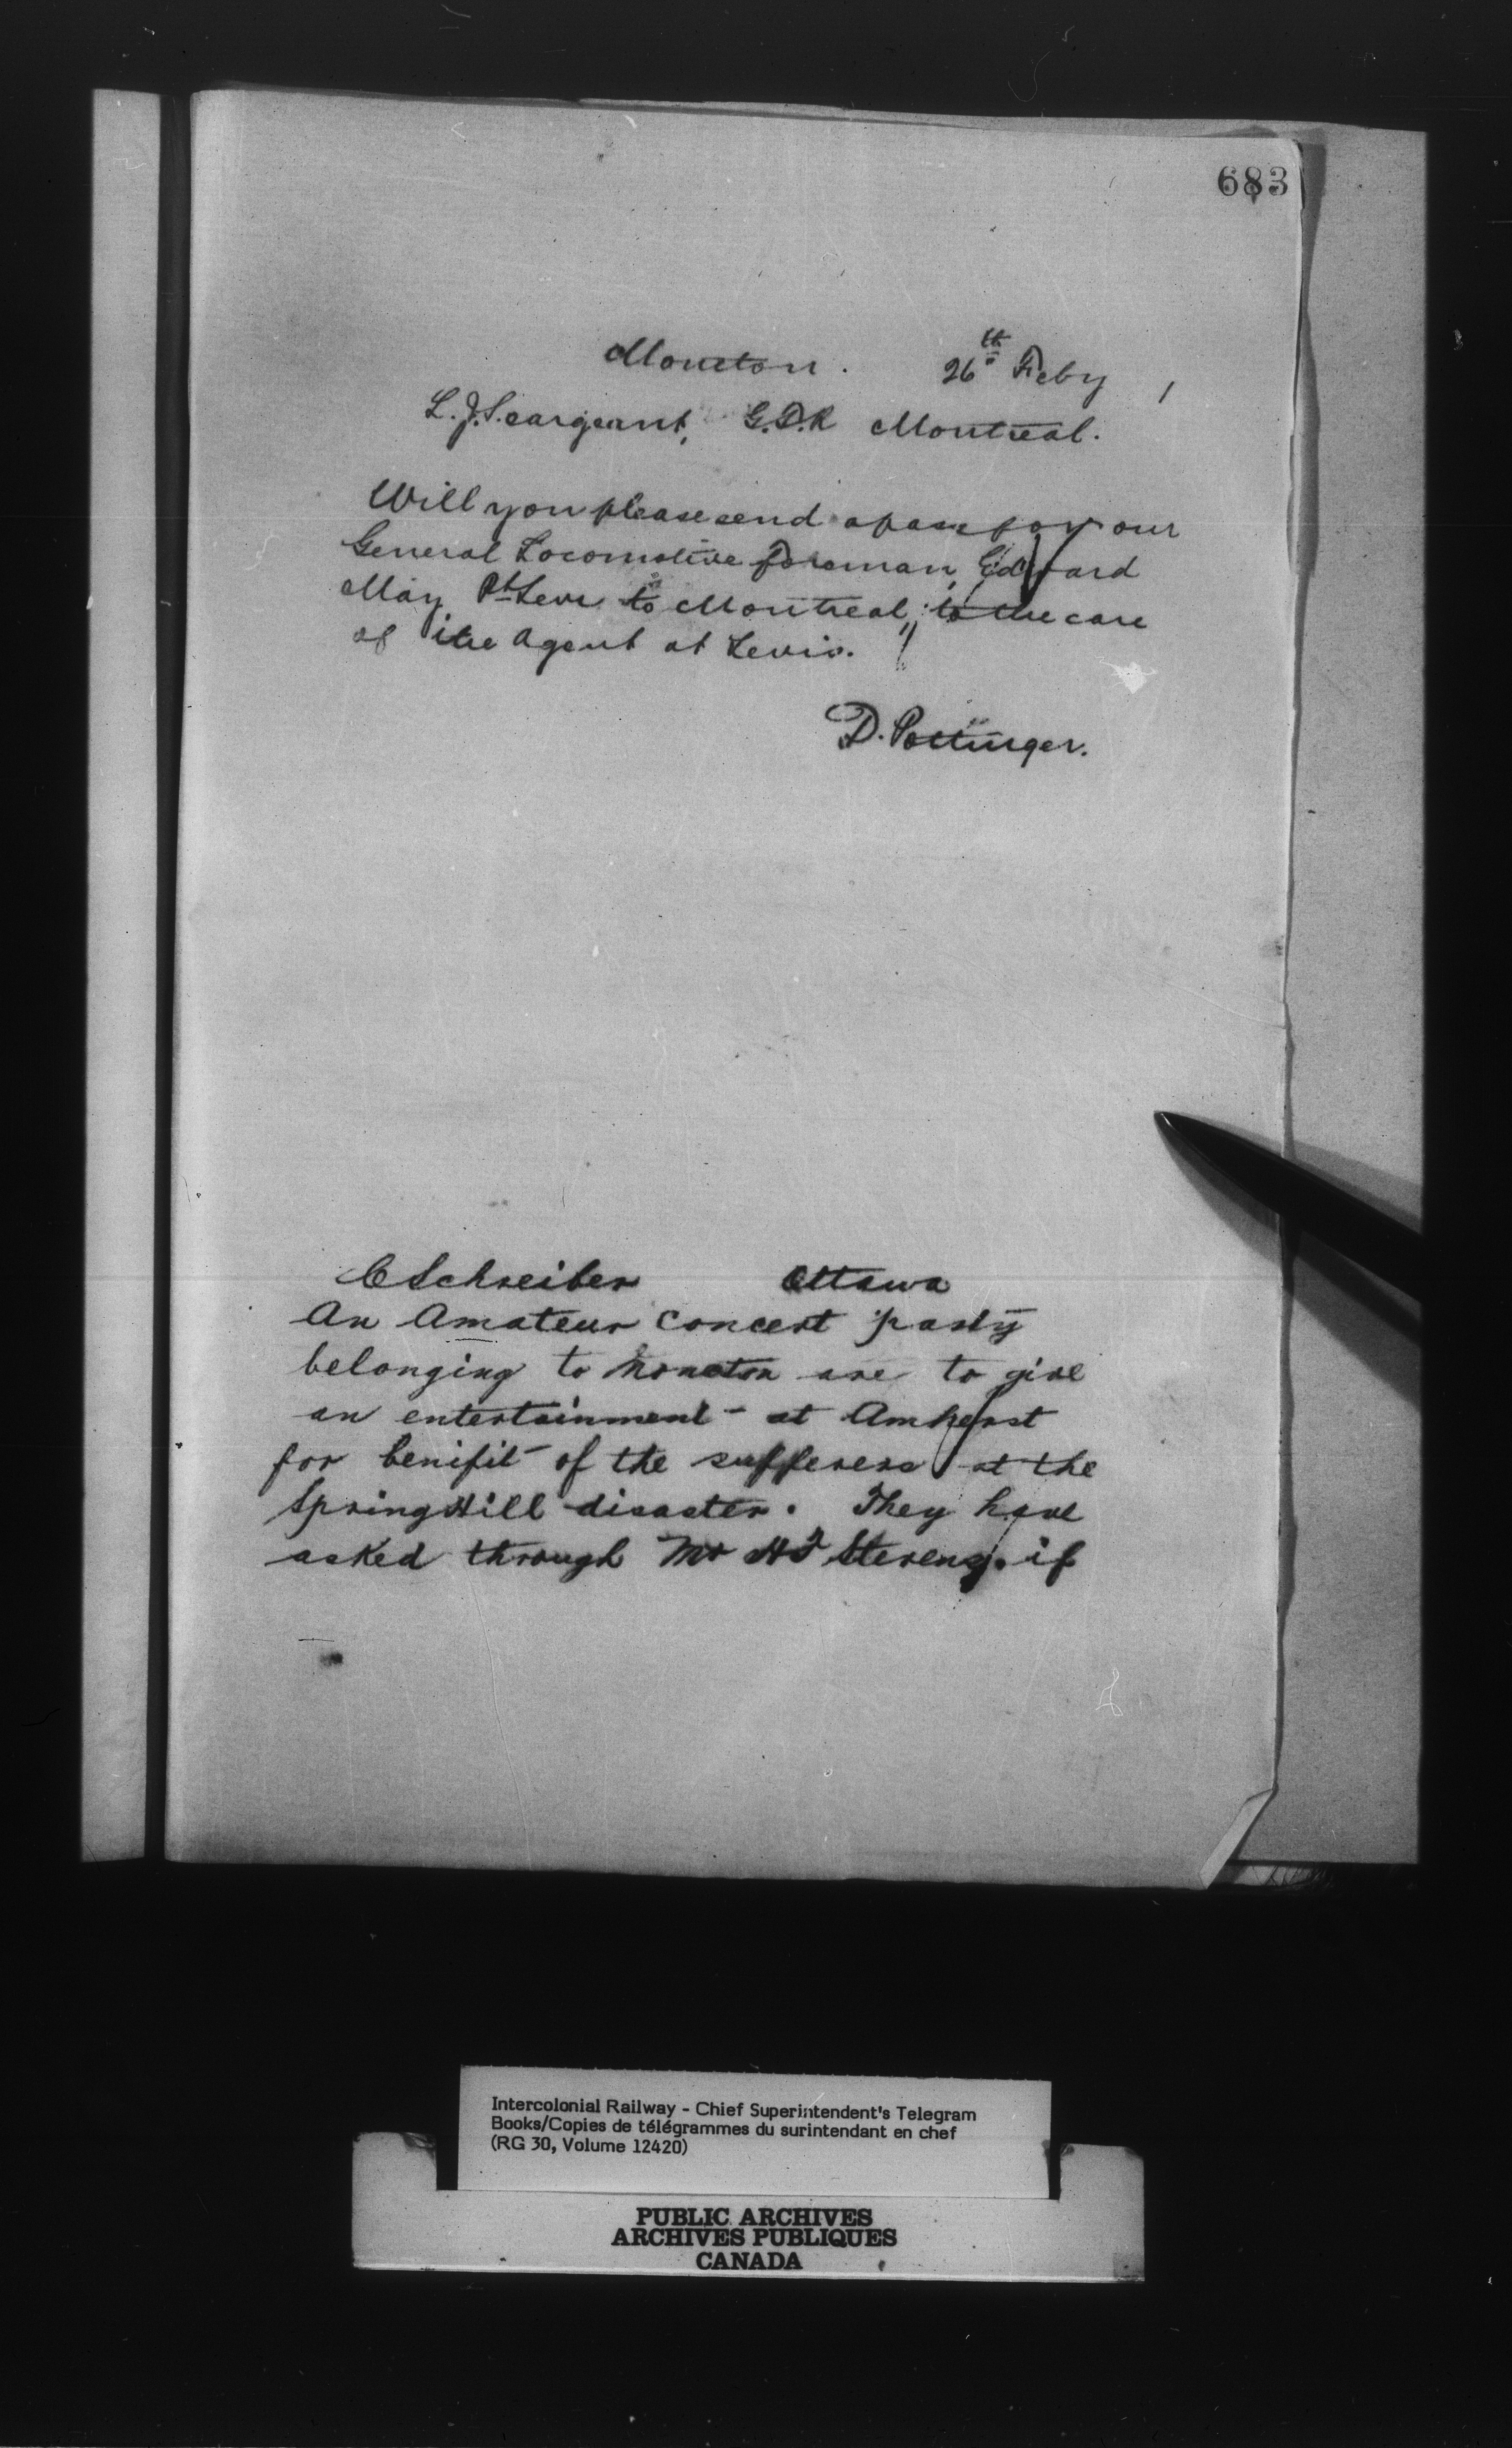 683
Moncton. 26th Feby
L. J. Seargeant, G.T.R Montreal.
Will you please send a pass for our
General Locomotive Foreman, Edward
May Pt Levi to Montreal, to the care
of the Agent at Levis.
D. Pottinger.
C Schreiber Ottawa
An Amateur Concert party
belonging to Moncton are to give
an entertainment at Amherst
for benifit of the sufferers at the
Spring Hill disaster. They have
asked through Mr H T Stevens. if
Intercolonial Railway - Chief Superintendent's Telegram
Books/Copies de télégrammes du surintendant en chef
(RG 30, Volume 12420)
PUBLIC ARCHIVES
ARCHIVES PUBLIQUES
CANADA